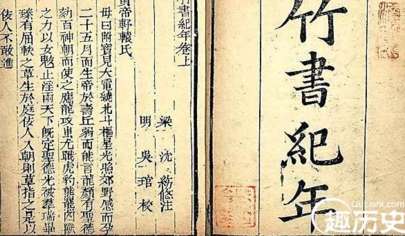 竹書紀年
竹書紀年卷上
梁 沈 約 修注
明 吳 琯 校
黃帝軒轅氏
母曰附寶見大電繞北斗樞星光照郊野感而孕
二十五月而生帝於壽丘弱而能言龍顏有聖德
劾百神朝而使之應龍攻蚩尤戰虎豹熊羆四獸
之力以女魃止淫雨天下既定聖德光被羣瑞畢
臻有屈軼之草生於庭佞人入朝則草指之是以
佞人不敢進
趣历史